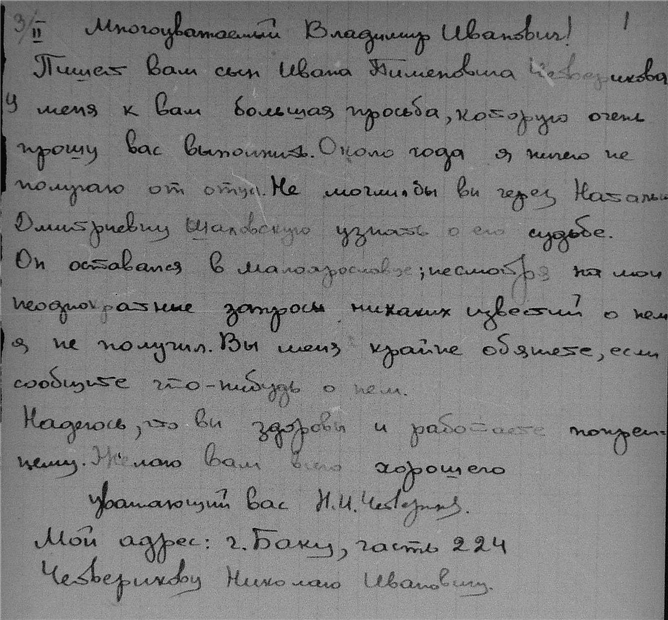 3/II Многоуважаемый Владимир Иванович! 1
Пишет вам сын Ивана Пименовича Четверикова
У меня к вам большая просьба, которую очень
прошу вас выполнить. Около года я ничего не
получаю от отца. Не могли бы вы через Наталью
Дмитриевну Шаховскую узнать о его судьбе.
Он оставался в Малоярославце; несмотря на мои
неоднократные запросы никаких известий о нем
я не получил. Вы меня крайне обяжете, если
сообщите что-нибудь о нем.
Надеюсь, что вы здоровы и работаете попреж-
нему. Желаю вам всего хорошего
уважающий вас Н.И. Четвериков.
Мой адрес: г. Баку, часть 224
Четверикову Николаю Ивановичу.